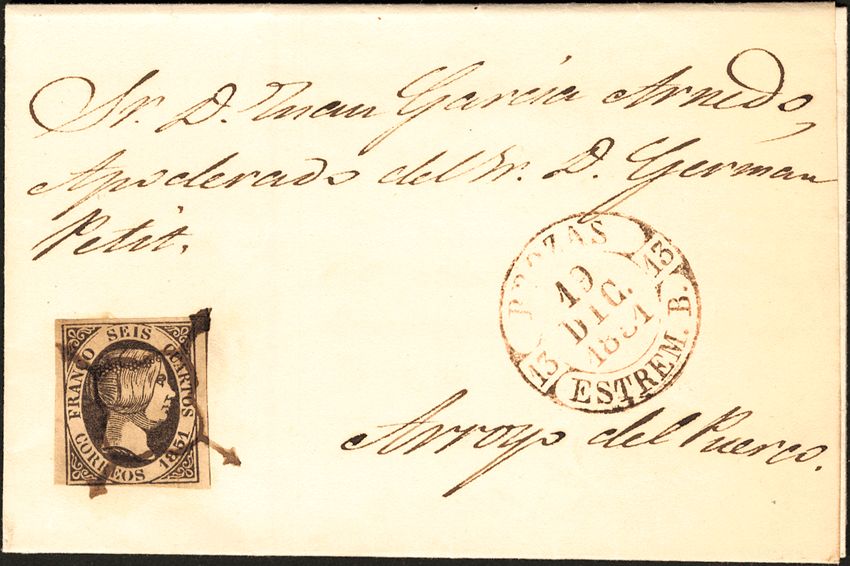 Sr. D. Juan García Arnedo,
Apoderado del Sr. D. German
Petit.
BROZAS
13
19
DIC.
1851
13
ESTREM. B.
FRANCO SEIS CUARTOS
CORREOS 1851
Arroyo del Puerco.